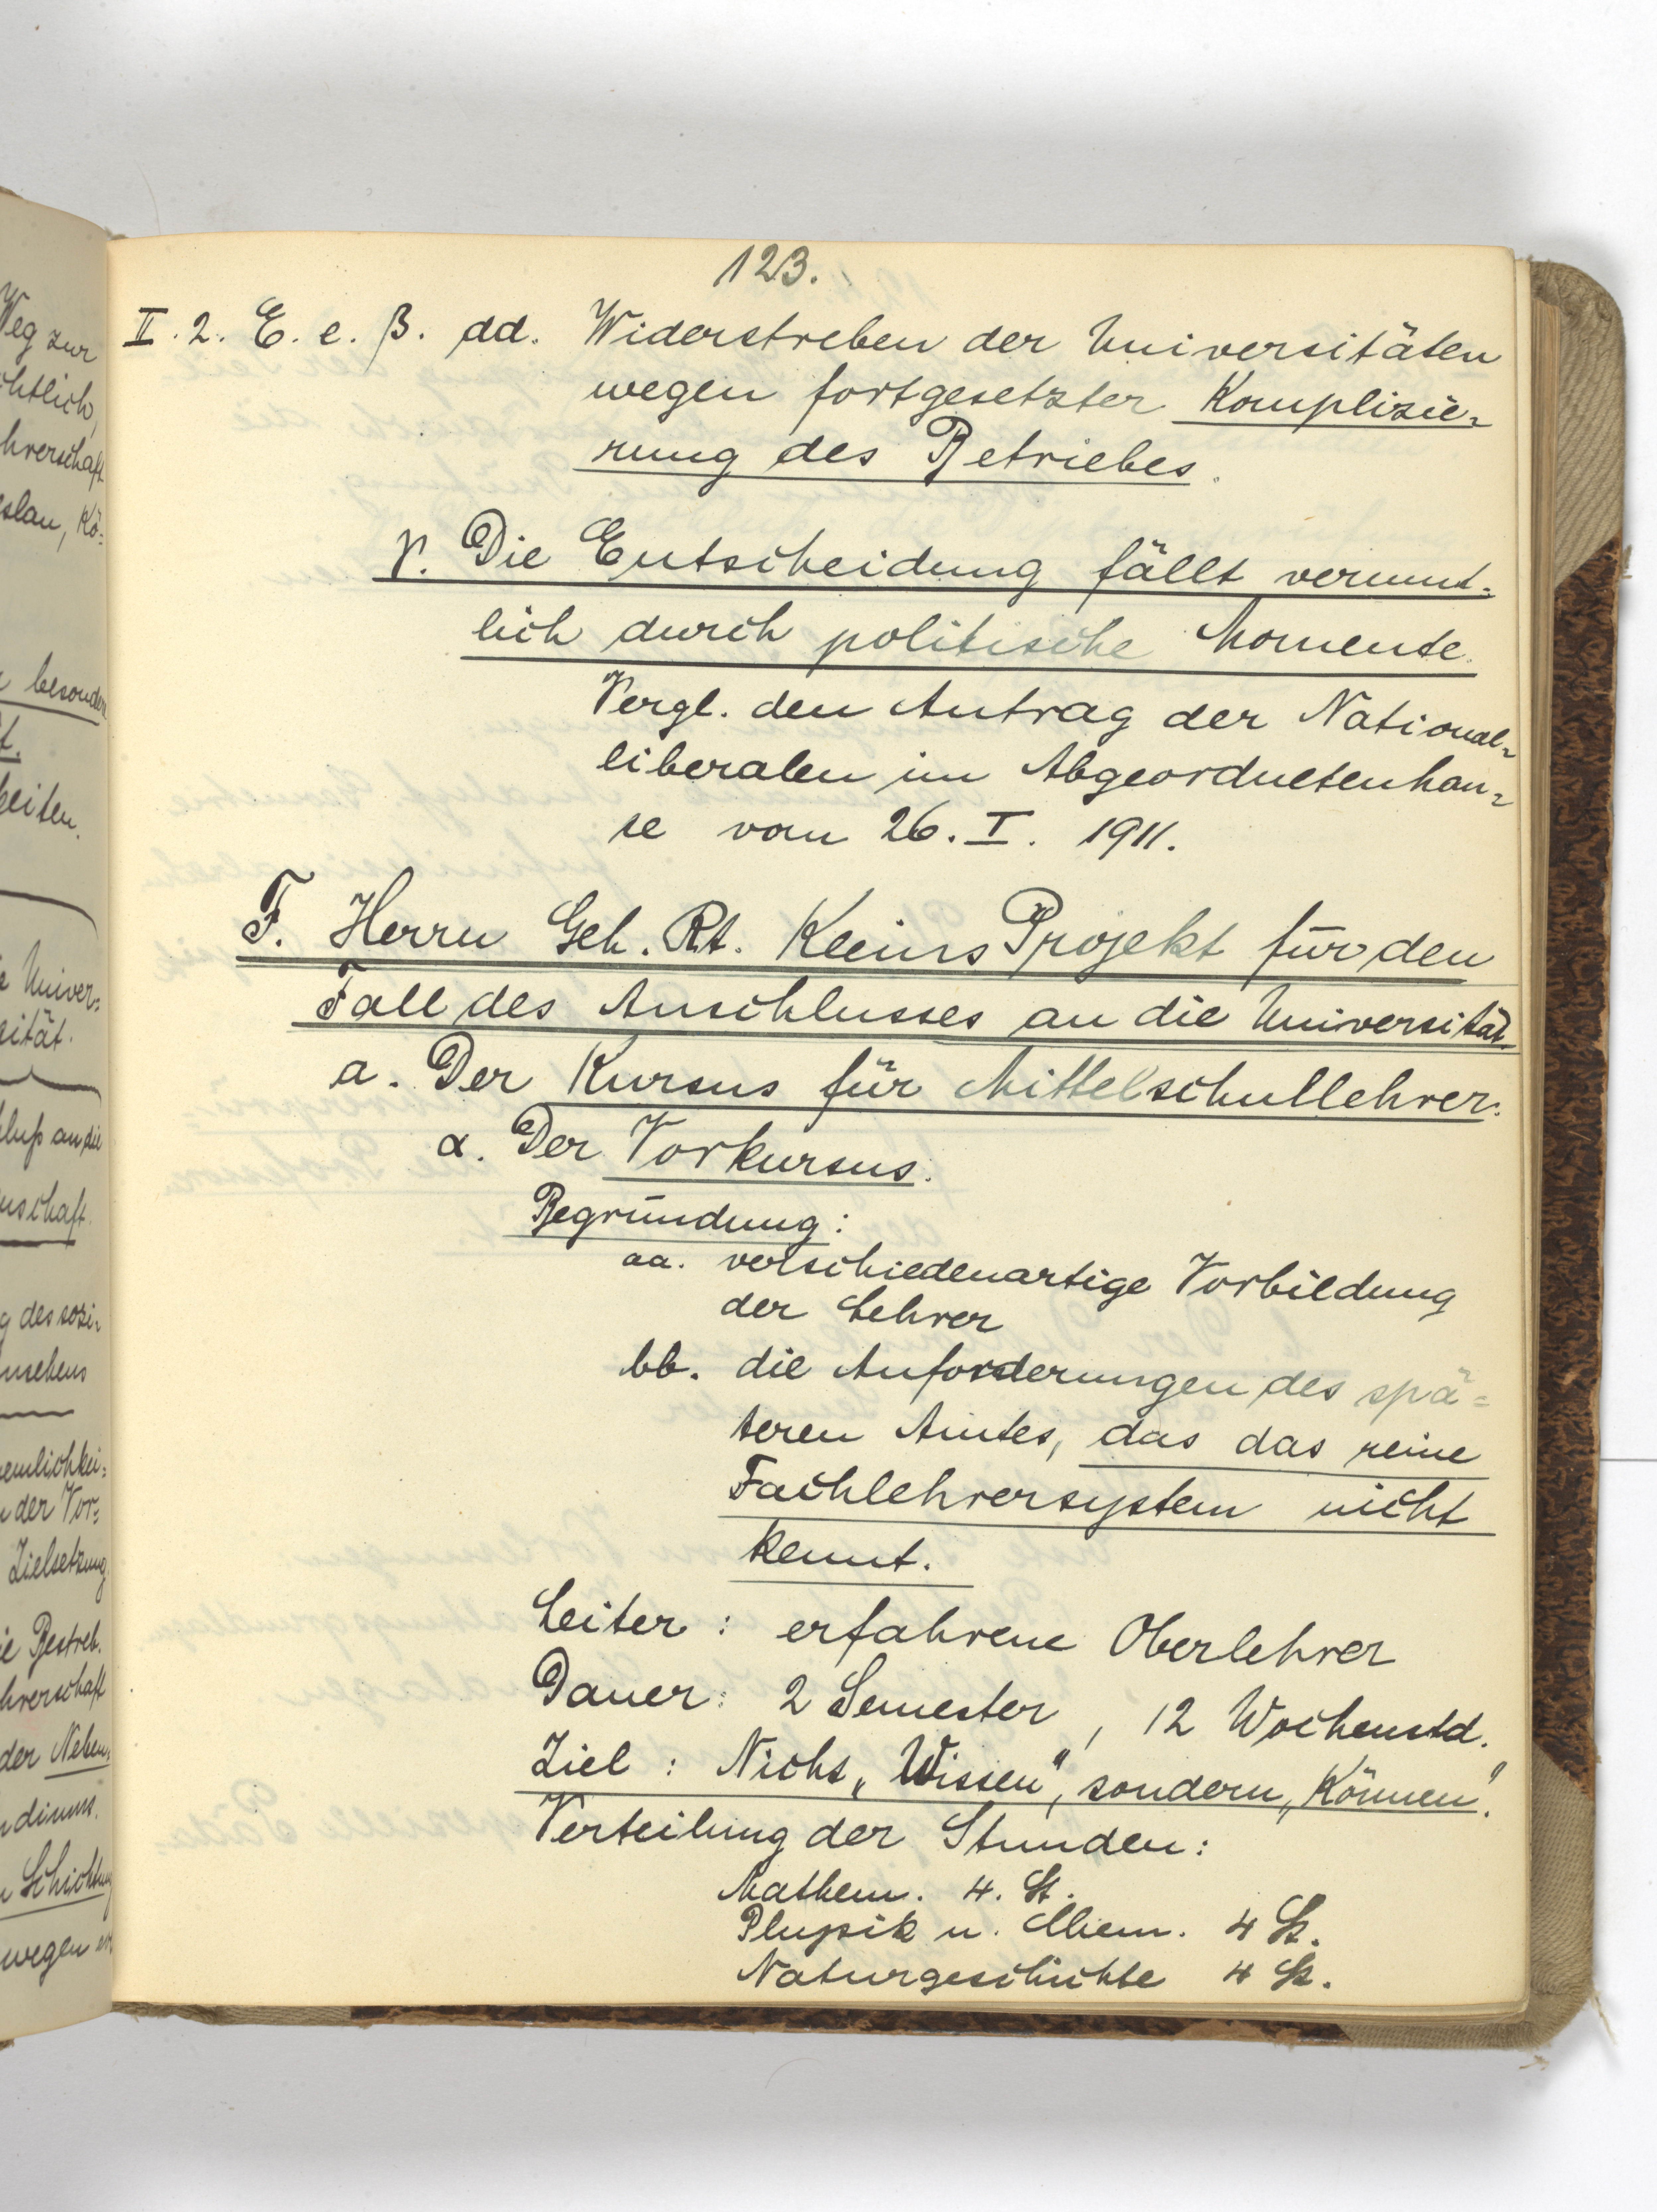 Weg zur
chtlich,
hrerschaft
eslau, Kö=
besondere
t.
beiten.
e Univer=
sität.
luß an die
nschaft.
g des sozi=
nsehens
hemlichkei=
n der Vor=
Zielsetzung
ie Bestreb.
hrerschaft
der Neben=
diums.
Schichtung
wegen
123.
II. 2. E. e. β. dd. Widerstreben der Universitäten
wegen fortgesetzter Komplizie=
rung des Betriebes.
γ. Die Entscheidung fällt vermut=
lich durch politische Momente.
Vergl. den Antrag der National=
liberalen im Abgeordnetenhau=
se vom 26. I. 1911.
F. Herrn Geh. Rt. Kleins Projekt für den
Fall des Anschlusses an die Universität.
a. Der Kursus für Mittelschullehrer.
α. Der Vorkursus.
Begründung:
aa. verschiedenartige Vorbildung
der Lehrer
bb. die Anforderungen des spä=
teren Amtes, das das reine
Fachlehrersystem nicht
kennt.
Leiter: erfahrene Oberlehrer
Dauer: 2 Semester, 12 Wochenstd.
Ziel: Nicht „Wissen", sondern „Können".
Verteilung der Stunden:
Mathem. 4. St.
Physik u. Chem. 4 St.
Naturgeschichte 4 St.